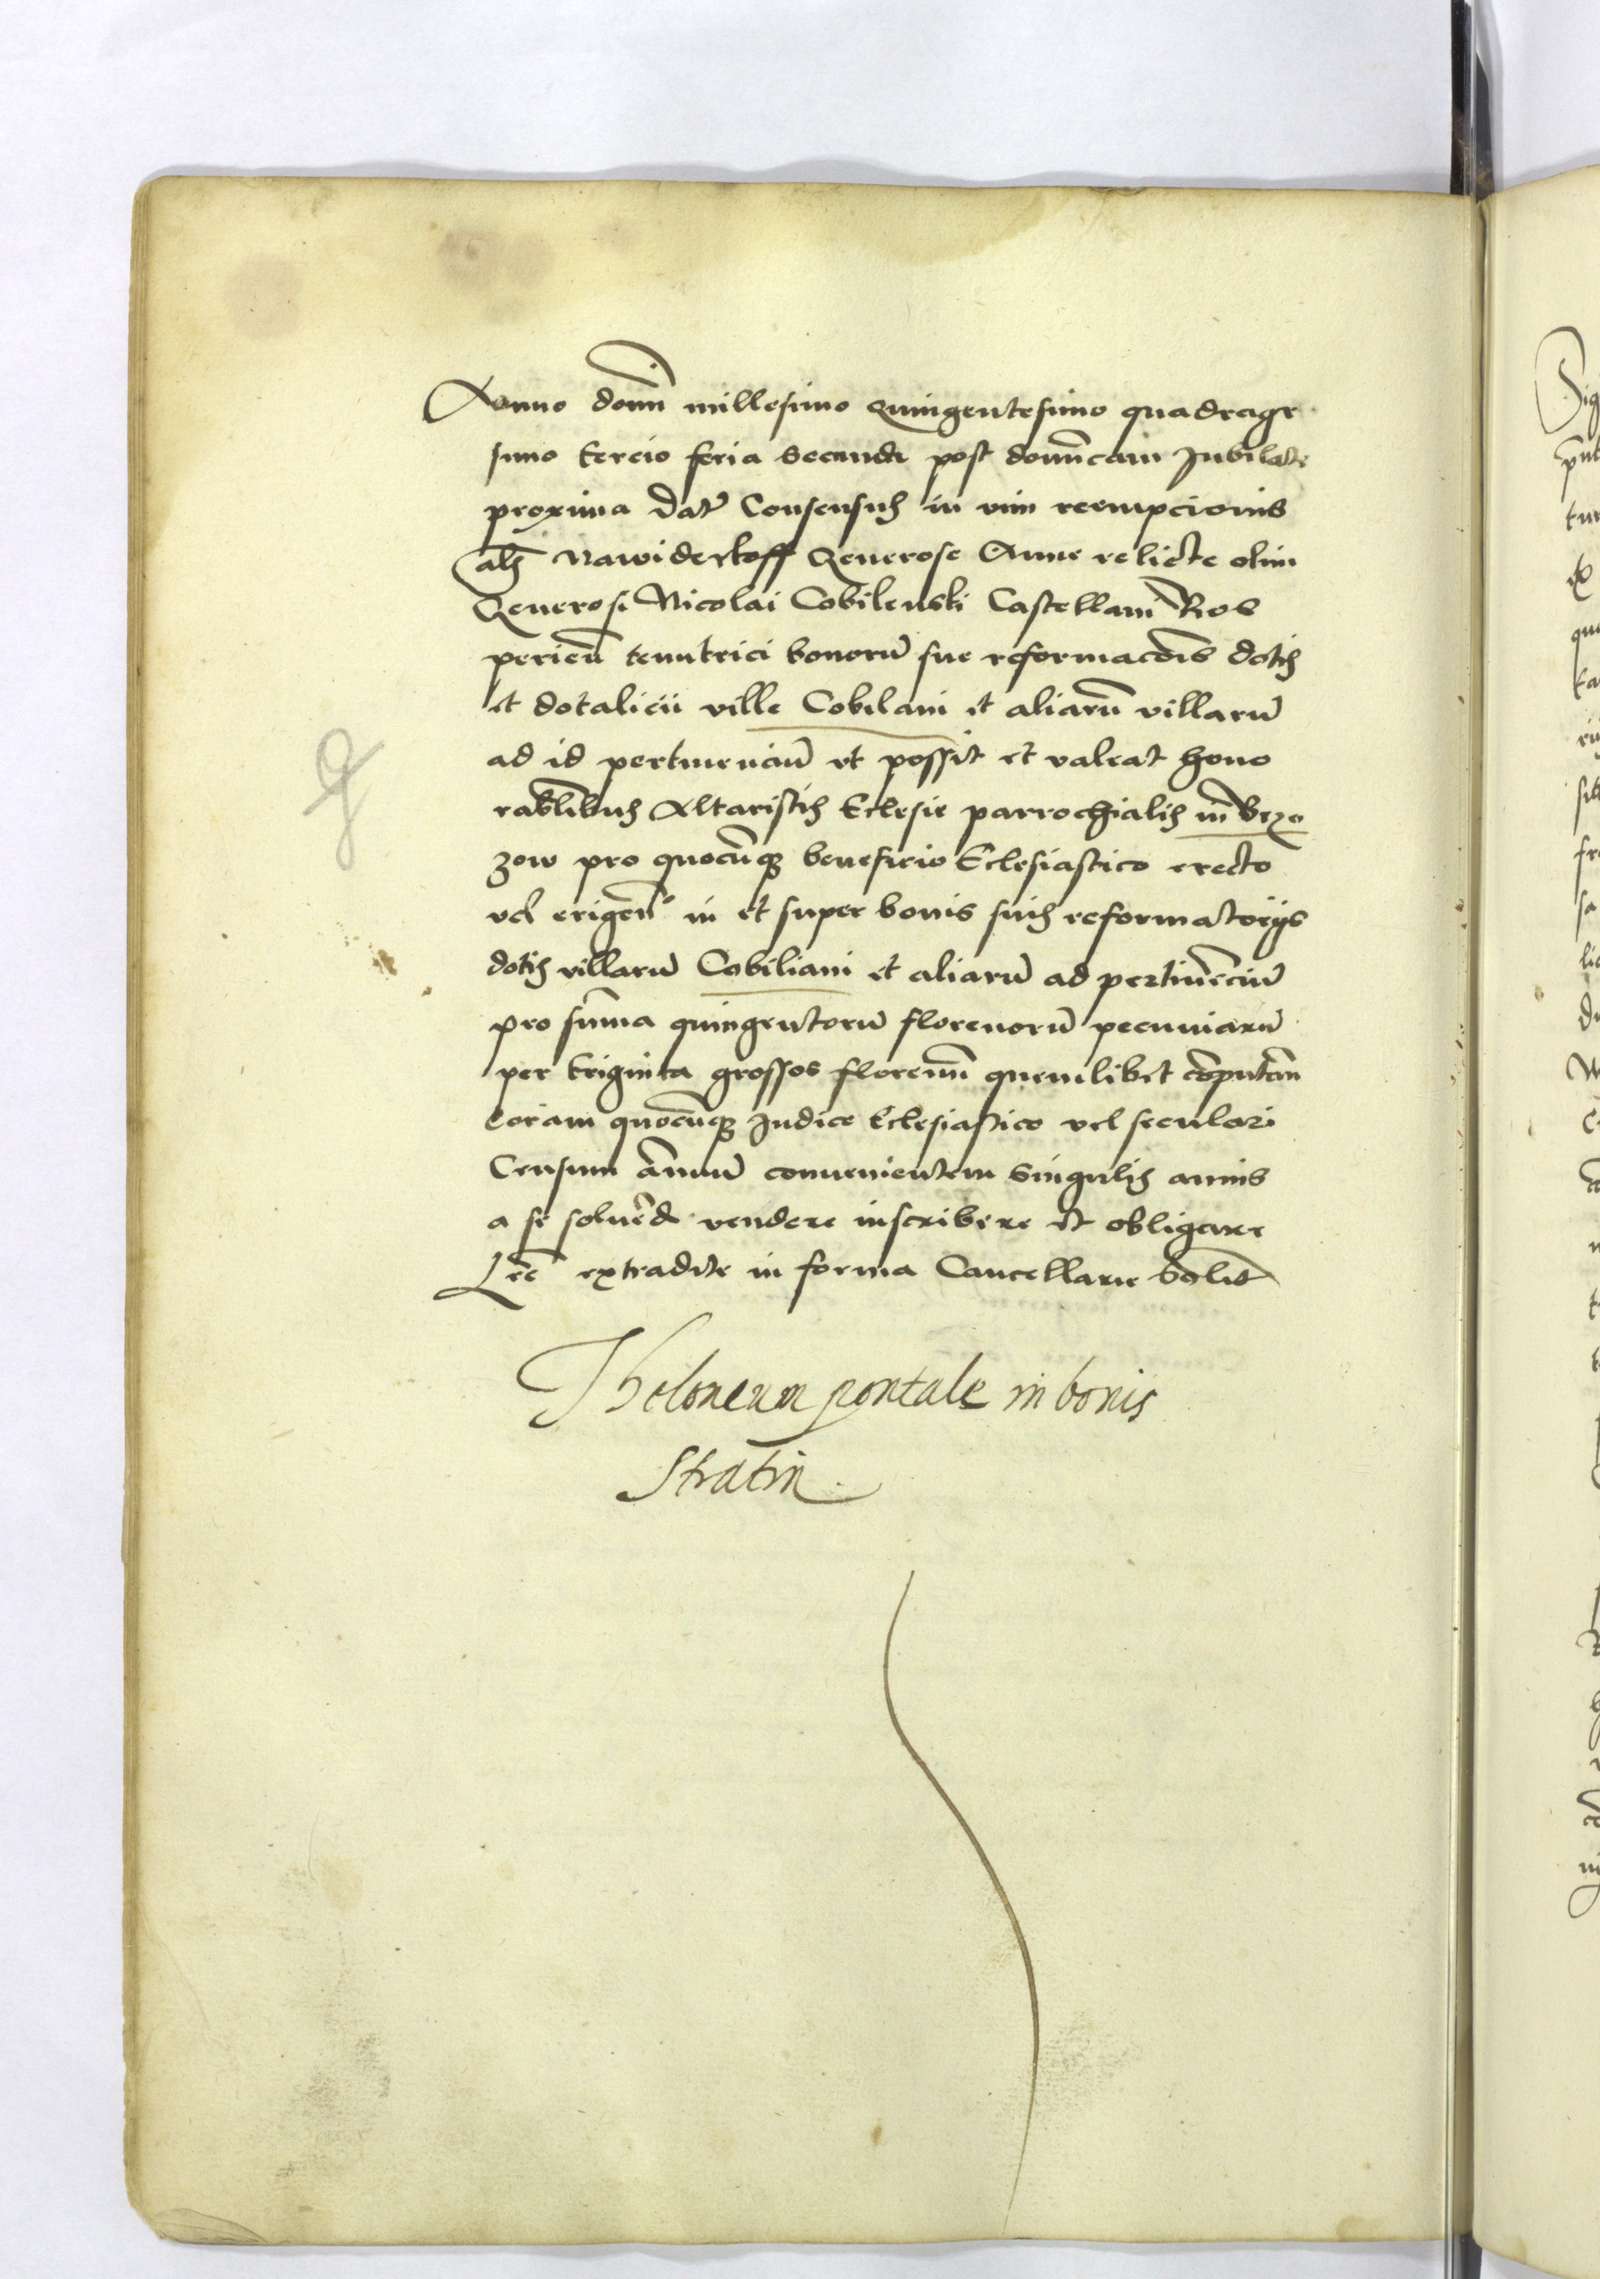 Anno domī millesimo Quingentesimo quadrage
simo tercio feria secunda post dominicam Jubilate
proxima Datꝰ Consensus in vim reempcionis
als Nawiderkoff Generose Anne relicte olim
Generosi Nicolai Cobilenski Castellani Ros
periēn tenutrici bonorū sue reformacōis dotis
et dotalicii ville Cobilani et aliarū villarū
ad id pertinenciū vt possit et valeat hono
rablibus Altaristis Eclesie parrochialis in Brzo
zow pro quocūqȝ beneficio Eclesiastico erecto
vel erigenº in et super bonis suis reformatoriis
dotis villarū Cobiliani et aliarū ad pertinēciū
pro sūma quingentorū florenorū pecuniarū
per triginta grossos florenū quemlibet cōputān
coram quocūqȝ Judice Eclesiastico vel seculari
Censum ānuū convenientem singulis annis
a se soluēd vendere inscribere et obligare
Lrē extradite in forma Cancellarie Solit
Theloneum pontale in bonis
Stratin.